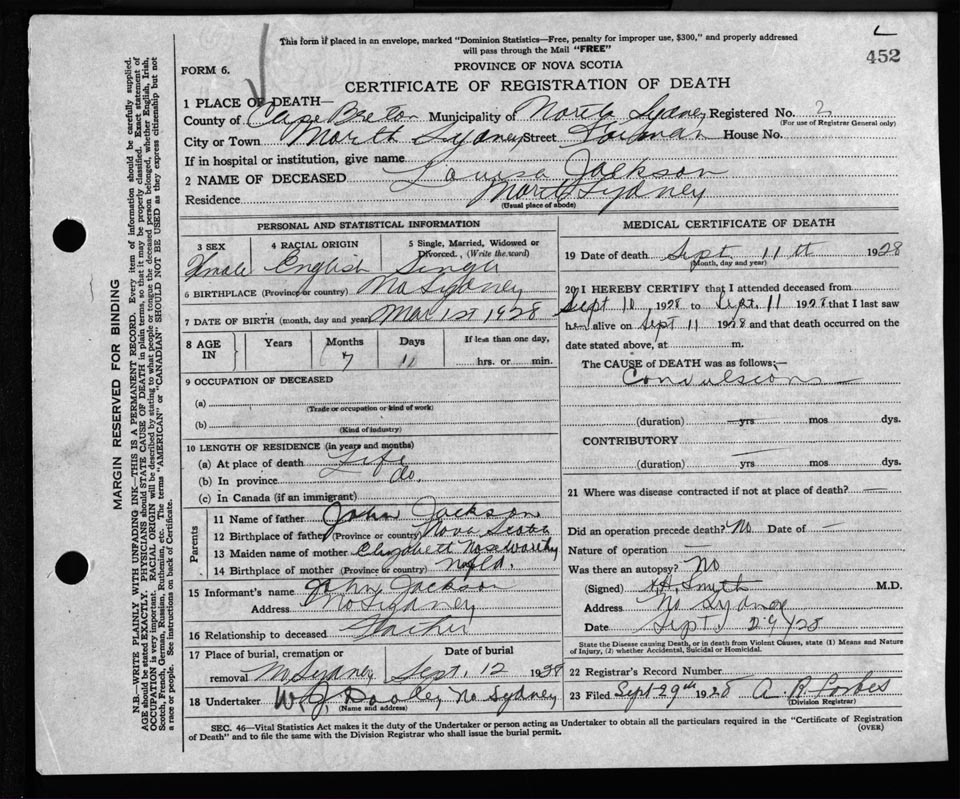 This form if placed in an envelope, marked "Dominion Statistics—Free, penalty for improper use, $300," and properly addressed
will pass through the Mail "FREE"
452
FORM 6.
PROVINCE OF NOVA SCOTIA
CERTIFICATE OF REGISTRATION OF DEATH
1 PLACE OF DEATH—
County of Cape Breton Municipality of North Sydney Registered No. 2
(For use of Registrar General only)
City or Town North Sydney Street House No.
If in hospital or institution, give name
2 NAME OF DECEASED Louisa Jackson
Residence North Sydney
(Usual place of abode)
MARGIN RESERVED FOR BINDING
N.B.—WRITE PLAINLY WITH UNFADING INK—THIS IS A PERMANENT RECORD. Every item of information should be carefully supplied.
AGE should be stated EXACTLY. PHYSICIANS should STATE CAUSE OF DEATH in plain terms, so that it may be properly classified. Exact statement of
OCCUPATION is very important. RACIAL ORIGIN will be described by stating to what people or tongue the deceased person belonged, whether English, Irish,
Scotch, French, German, Russian, Ruthenian, etc. The terms "AMERICAN" or "CANADIAN" SHOULD NOT BE USED as they express citizenship but not
a race or people. See instructions on back of Certificate.
PERSONAL AND STATISTICAL INFORMATION
3 SEX 4 RACIAL ORIGIN 5 Single, Married, Widowed or
Divorced. (Write the word)
Female English Single
6 BIRTHPLACE (Province or country) No Sydney
7 DATE OF BIRTH (month, day and year) Mar 1st 1928
8 AGE IN Years Months Days If less than one day,
7 11 hrs. or min.
9 OCCUPATION OF DECEASED
(a)
(Trade or occupation or kind of work)
(b)
(Kind of industry)
10 LENGTH OF RESIDENCE (in years and months)
(a) At place of death Life
(b) In province do.
(c) In Canada (if an immigrant)
Parents
11 Name of father John Jackson
12 Birthplace of father (Province or country) Nova Scotia
13 Maiden name of mother Elizabeth Nosworthy
14 Birthplace of mother (Province or country) Nfld.
15 Informant's name John Jackson
Address No Sydney
16 Relationship to deceased Father
17 Place of burial, cremation or Date of burial
removal N Sydney Sept. 12 1928
18 Undertaker W J Dooley No Sydney
(Name and address)
MEDICAL CERTIFICATE OF DEATH
19 Date of death Sept 11th 1928
(Month, day and year)
20 I HEREBY CERTIFY that I attended deceased from
Sept 10 1928 to Sept. 11 1928 that I last saw
her alive on Sept 11 1928 and that death occurred on the
date stated above, at m.
The CAUSE of DEATH was as follows:—
Convulsions —
(duration) yrs mos dys.
CONTRIBUTORY
(duration) yrs mos dys.
21 Where was disease contracted if not at place of death? —
Did an operation precede death? No Date of —
Nature of operation —
Was there an autopsy? No
(Signed) Smyth M.D.
Address No Sydney
Date Sept 29/28
State the Disease causing Death, or in death from Violent Causes, state (1) Means and Nature
of Injury, (2) whether Accidental, Suicidal or Homicidal.
22 Registrar's Record Number
23 Filed Sept 29th 1928 A. R. Forbes
(Division Registrar)
SEC. 46—Vital Statistics Act makes it the duty of the Undertaker or person acting as Undertaker to obtain all the particulars required in the "Certificate of Registration
of Death" and to file the same with the Division Registrar who shall issue the burial permit.
(OVER)